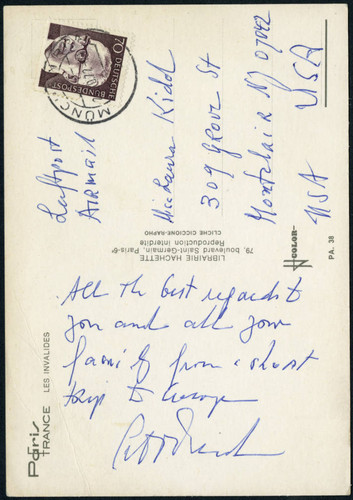 70
DEUTSCHE
BUNDESPOST
MÜNCH
Luftpost
Airmail
Miss Laura Kidd
309 Grove St
Montclair NJ 07042
USA
USA
LIBRAIRIE HACHETTE
79, boulevard Saint-Germain, Paris-6e
Reproduction interdite
CLICHÉ CICCIONE-RAPHO
COLOR
PA. 38
All the best regards to
you and all your
family from a short
trip to Europe
Paris
FRANCE LES INVALIDES